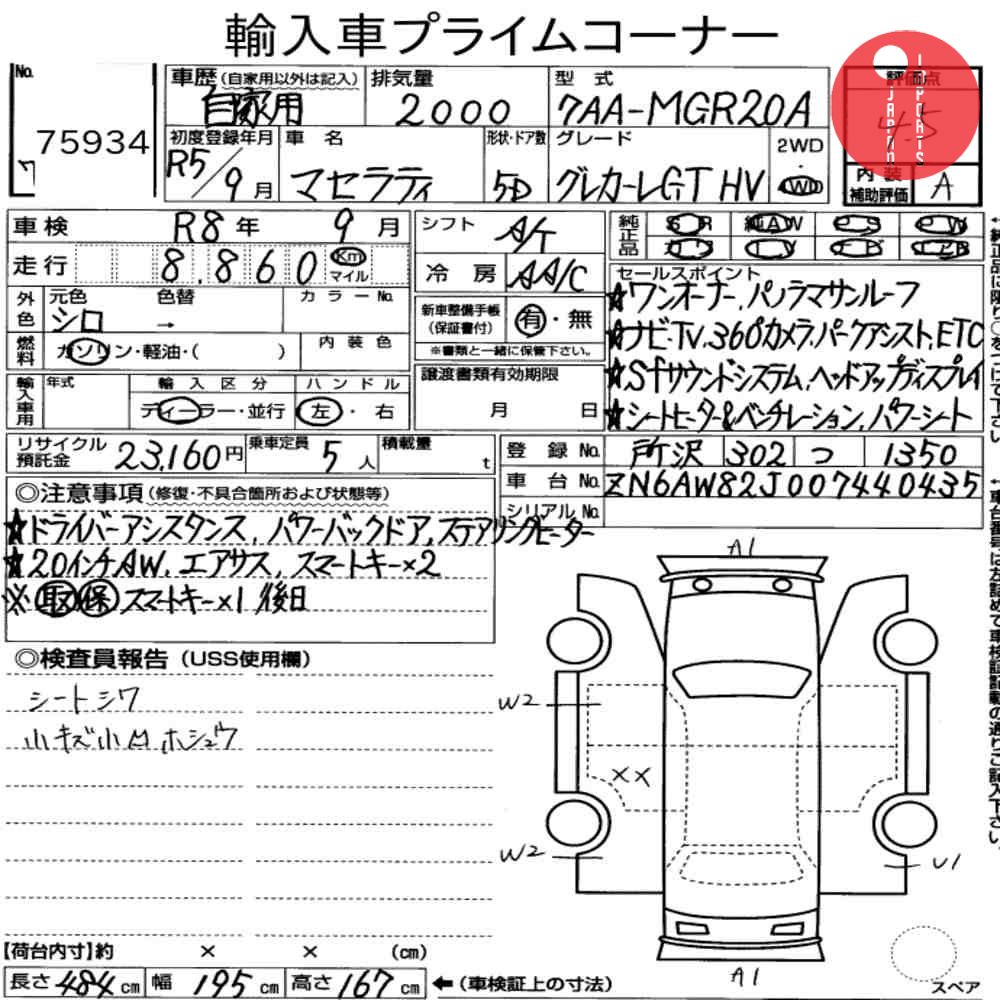 輸入車プライムコーナー
No.
75934
車歴(自家用以外は記入)
自家用
排気量
2000
型式
7AA-MGR20A
評価点
4.5
JAPAN
IMPORTS
初度登録年月
R5/9月
車名
マセラティ
形状・ドア数
5D
グレード
グレカーレGT HV
2WD
4WD
内装
補助評価
A
車検 R8年 9月
走行 8,860 Km マイル
外色
元色
シロ
色替
→
カラーNo.
燃料
ガソリン・軽油・( )
内装色
輸入車用
年式
輸入区分
ディーラー・並行
ハンドル
左・右
シフト A/T
冷房 AA/C
新車整備手帳
(保証書付)
有・無
※書類と一緒に保管下さい。
譲渡書類有効期限
月 日
純正品
SR 純AW PS PW
カワ TV ナビ エアB
セールスポイント
★ワンオーナー、パノラマサンルーフ
★ナビ・TV、360°カメラ、パークアシスト、ETC
★Sfサウンドシステム、ヘッドアップディスプレイ
★シートヒータ&ベンチレーション、パワーシート
リサイクル
預託金
23,160円
乗車定員 5人
積載量 t
登録No. 所沢 302 つ 1350
車台No. ZN6AW82J007440435
シリアルNo.
◎注意事項(修復・不具合箇所および状態等)
★ドライバーアシスタンス、パワーバックドア、ステアリングヒーター
★20インチAW、エアサス、スマートキー×2
※取保スマートキー×1後日
◎検査員報告(USS使用欄)
シートシワ
小キズ小凹ホシュウ
A1
W2
XX
W2
U1
A1
【荷台内寸】約 × × (cm)
長さ484cm 幅195cm 高さ167cm ←(車検証上の寸法)
スペア